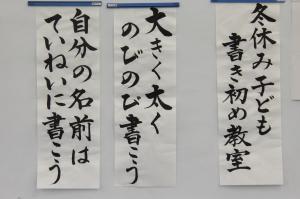 冬休み子ども
書き初め教室
大きく太く
のびのび書こう
自分の名前は
ていねいに書こう